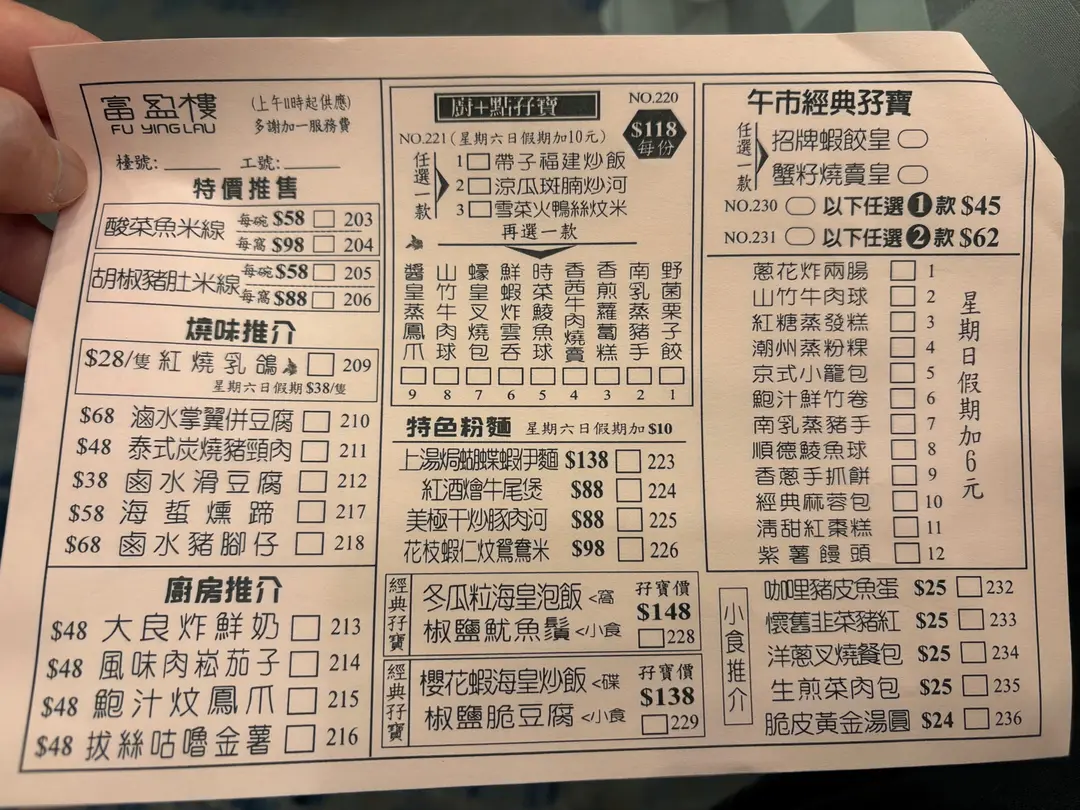 富盈樓
FU YING LAU
(上午11時起供應)
多謝加一服務費
檯號: 工號:
特價推售
酸菜魚米線 每碗 $58 203
每窩 $98 204
胡椒豬肚米線 每碗 $58 205
每窩 $88 206
燒味推介
$28/隻 紅燒乳鴿 209
星期六日假期 $38/隻
$68 滷水掌翼併豆腐 210
$48 泰式炭燒豬頸肉 211
$38 鹵水滑豆腐 212
$58 海蜇燻蹄 217
$68 鹵水豬腳仔 218
廚房推介
$48 大良炸鮮奶 213
$48 風味肉崧茄子 214
$48 鮑汁炆鳳爪 215
$48 拔絲咕嚕金薯 216
廚+點孖寶
NO.220
$118
每份
NO.221 (星期六日假期加10元)
任選一款
1 帶子福建炒飯
2 涼瓜斑腩炒河
3 雪菜火鴨絲炆米
再選一款
醬皇蒸鳳爪 9
山竹牛肉球 8
蠔皇叉燒包 7
鮮蝦炸雲吞 6
時菜鯪魚球 5
香茜牛肉燒賣 4
香煎蘿蔔糕 3
南乳蒸豬手 2
野菌栗子餃 1
特色粉麵 星期六日假期加 $10
上湯焗蝴蝶蝦伊麵 $138 223
紅酒燴牛尾煲 $88 224
美極干炒豚肉河 $88 225
花枝蝦仁炆鴛鴦米 $98 226
經典孖寶
冬瓜粒海皇泡飯 <窩 孖寶價
$148
椒鹽魷魚鬚 <小食 228
經典孖寶
櫻花蝦海皇炒飯 <碟 孖寶價
$138
椒鹽脆豆腐 <小食 229
午市經典孖寶
任選一款
招牌蝦餃皇
蟹籽燒賣皇
NO.230 以下任選 1 款 $45
NO.231 以下任選 2 款 $62
蔥花炸兩腸 1
山竹牛肉球 2
紅糖蒸發糕 3
潮州蒸粉粿 4
京式小籠包 5
鮑汁鮮竹卷 6
南乳蒸豬手 7
順德鯪魚球 8
香蔥手抓餅 9
經典麻蓉包 10
清甜紅棗糕 11
紫薯饅頭 12
星期日假期加6元
小食推介
咖哩豬皮魚蛋 $25 232
懷舊韭菜豬紅 $25 233
洋蔥叉燒餐包 $25 234
生煎菜肉包 $25 235
脆皮黃金湯圓 $24 236